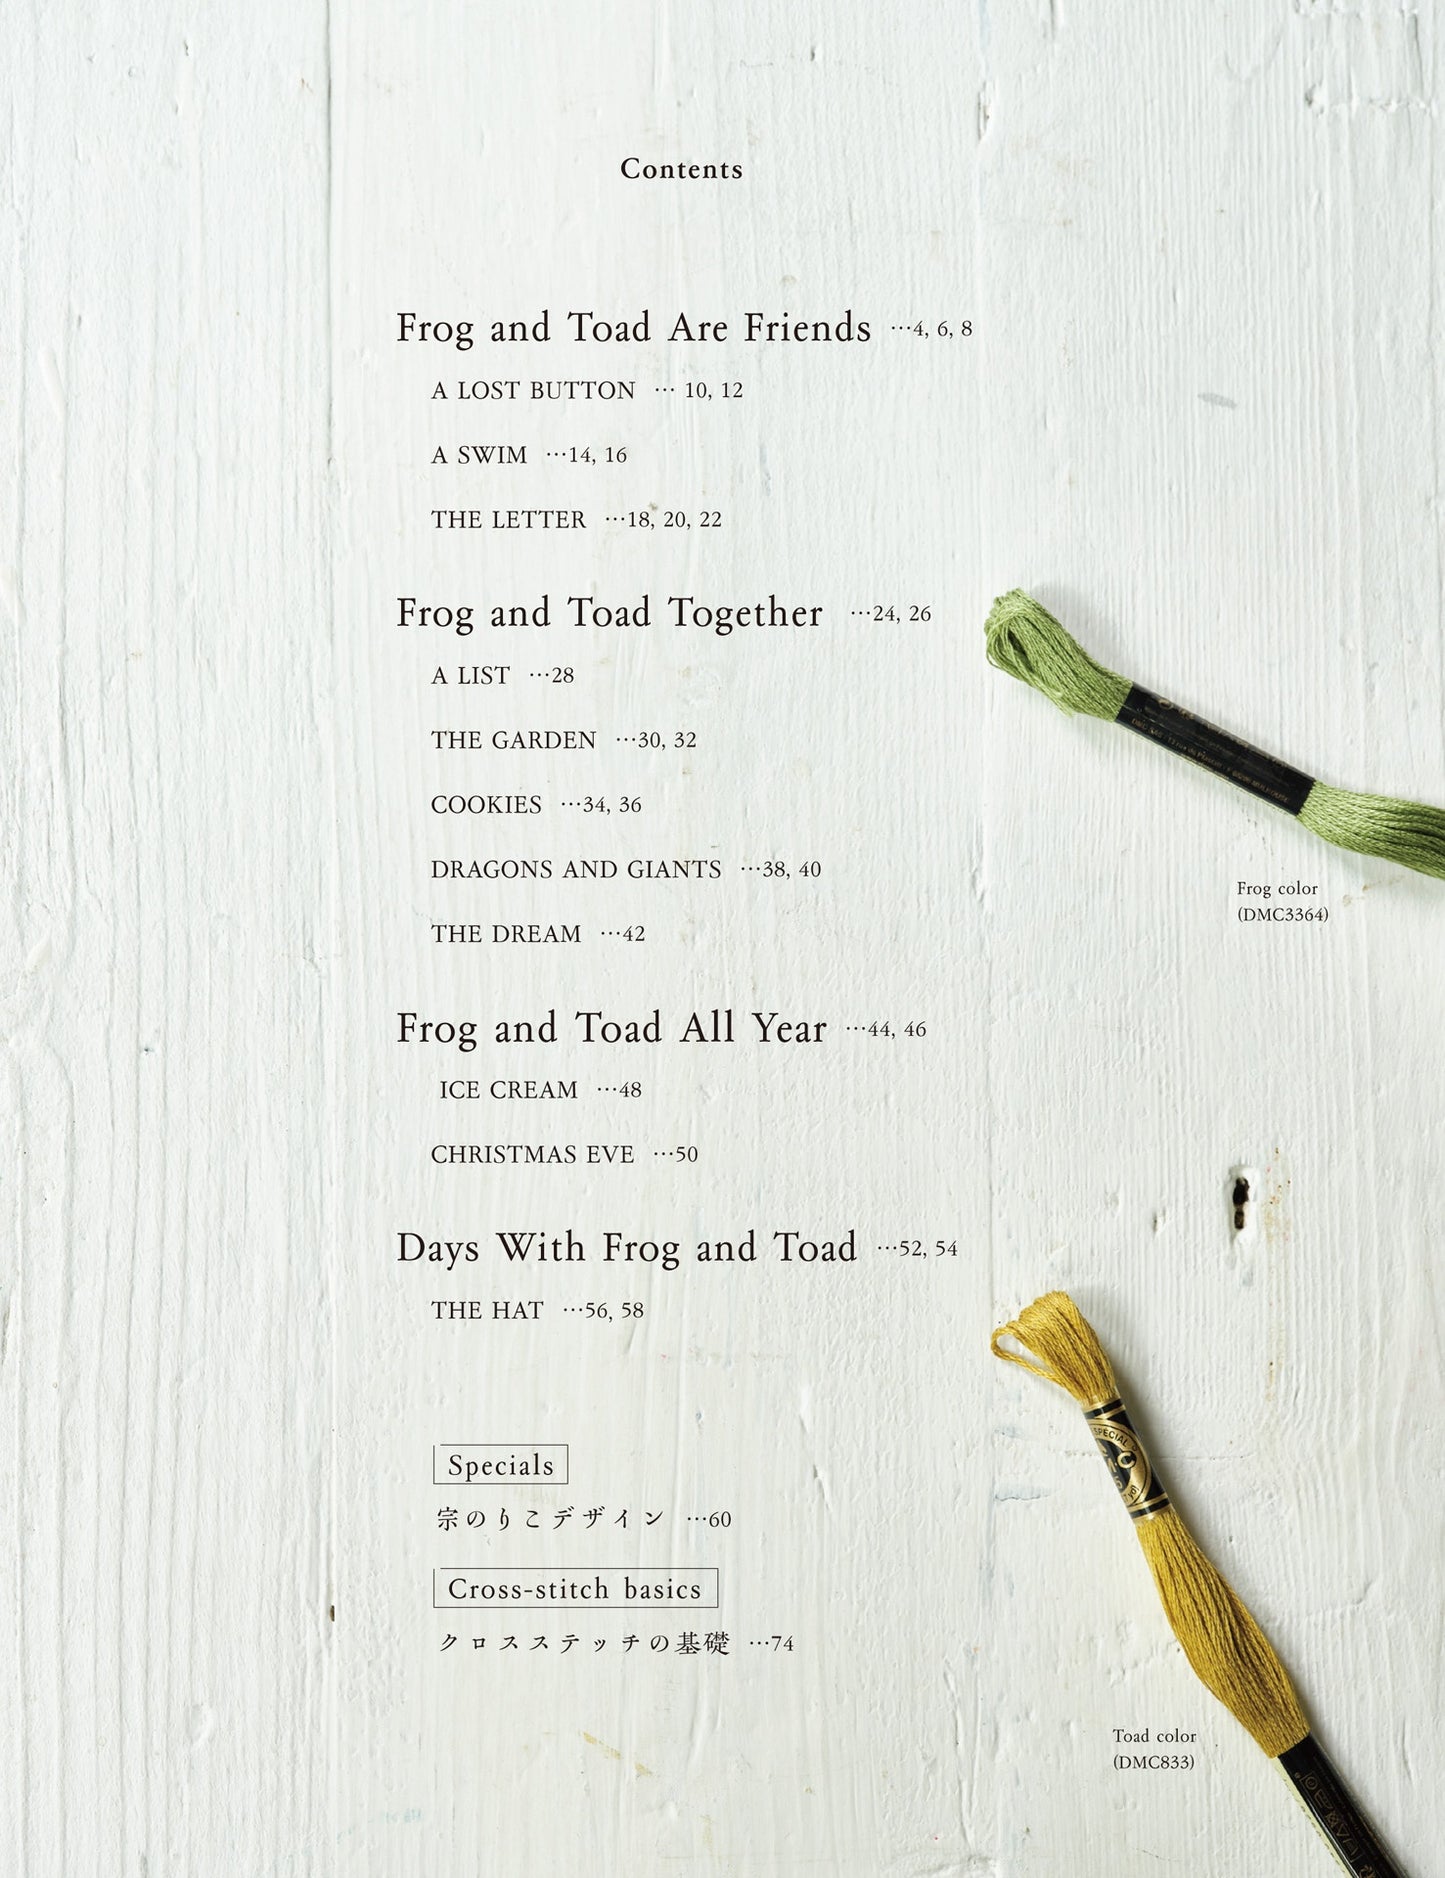 Contents
Frog and Toad Are Friends …4, 6, 8
A LOST BUTTON … 10, 12
A SWIM …14, 16
THE LETTER …18, 20, 22
Frog and Toad Together …24, 26
A LIST …28
THE GARDEN …30, 32
COOKIES …34, 36
DRAGONS AND GIANTS …38, 40
THE DREAM …42
Frog and Toad All Year …44, 46
ICE CREAM …48
CHRISTMAS EVE …50
Days With Frog and Toad …52, 54
THE HAT …56, 58
Specials
宗のりこデザイン …60
Cross-stitch basics
クロスステッチの基礎 …74
Frog color
(DMC3364)
SPECIAL
Toad color
(DMC833)